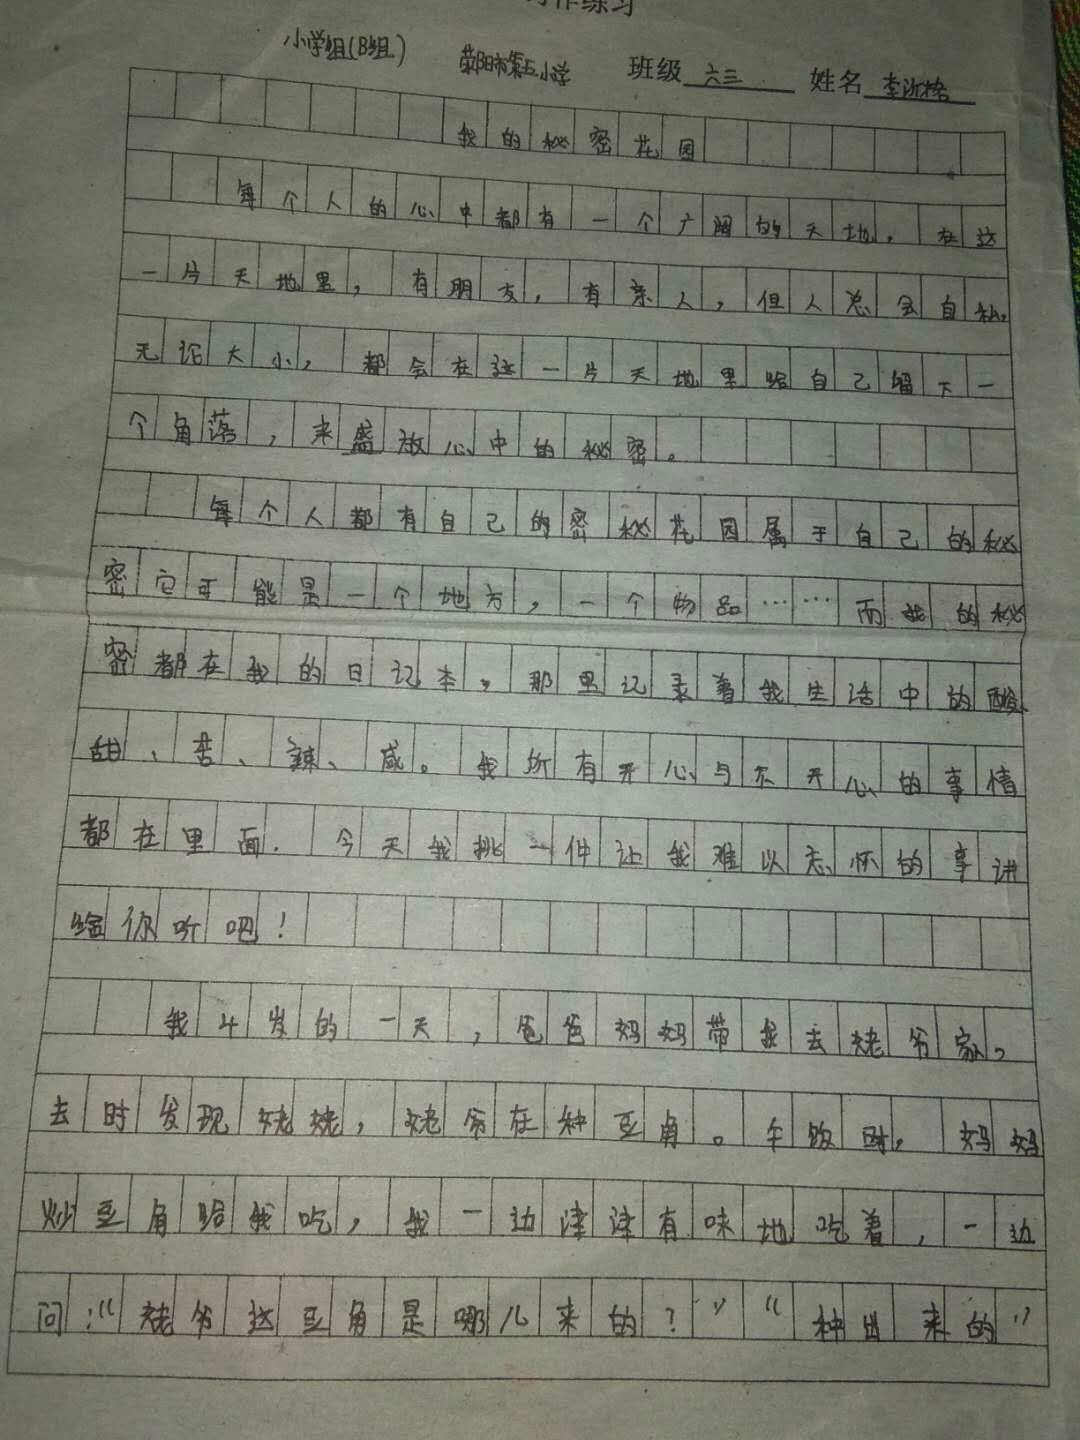 写作练习
小学组(B组) 荥阳市第五小学 班级 六三 姓名 李沂
我的秘密花园
每个人的心中都有一个广阔的天地，在这
一片天地里，有朋友，有亲人，但人总会自私，
无论大小，都会在这一片天地里给自己留下一
个角落，来盛放心中的秘密。
每个人都有自己的密秘花园属于自己的秘
密它可能是一个地方，一个物品……而我的秘
密都在我的日记本，那里记录着我生活中的酸
甜、苦、辣、咸。我所有开心与不开心的事情
都在里面．今天我挑一件让我难以忘怀的事讲
给你听吧！
我4岁的一天，爸爸妈妈带我去姥爷家。
去时发现姥姥，姥爷在种豆角。午饭时，妈妈
炒豆角给我吃，我一边津津有味地吃着，一边
问：“姥爷这豆角是哪儿来的？”“种出来的”